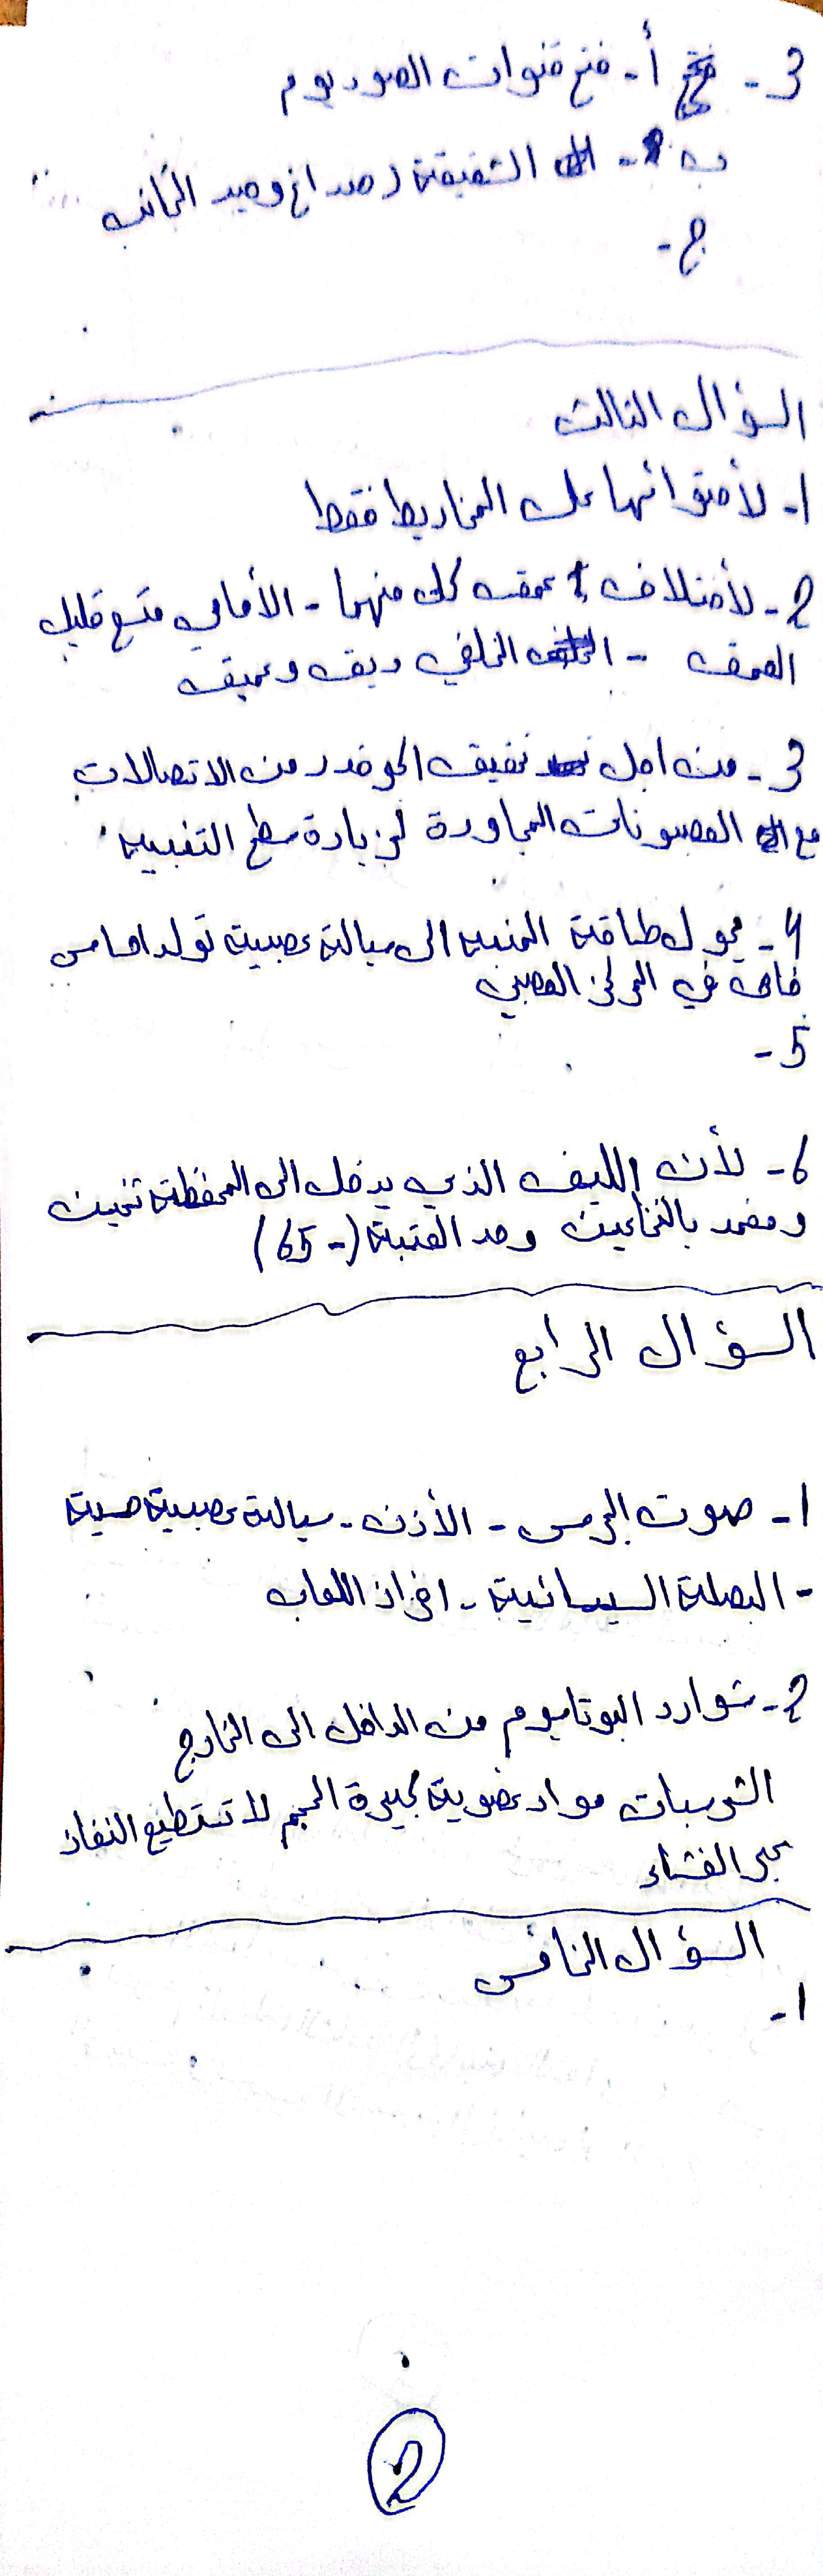 3- أ- فتح قنوات الصوديوم
ب - الشقيقة (صداع وحيد الجانب
ج -
السؤال الثالث
1- لأحتوائها على المخاريط فقط
2- لأختلاف عمق كل منهما - الأمامي متسع قليل
العمق - الخلفي ضيق وعميق
3- من اجل تحقيق الحد من الاتصالات
مع العصبونات المجاورة لزيادة سطح التغبيه
4- يحول طاقة المنبه الى سيالة عصبية تولد احساس
خاص في المركز العصبي
5-
6- لأن الليف الذي يدخل الى المحفظة ثخين
ومغمد بالنخاعين وحد العتبة (-65)
السؤال الرابع
1- صوت الجرس - الأذن - سيالة عصبية حسية
- البصلة السيسائية - افراز اللعاب
2- شوارد البوتاسيوم من الداخل الى الخارج
الشرسبات مواد عضوية كبيرة الحجم لا تستطيع النفاذ
عبر الغشاء
السؤال الخامس
1-
2